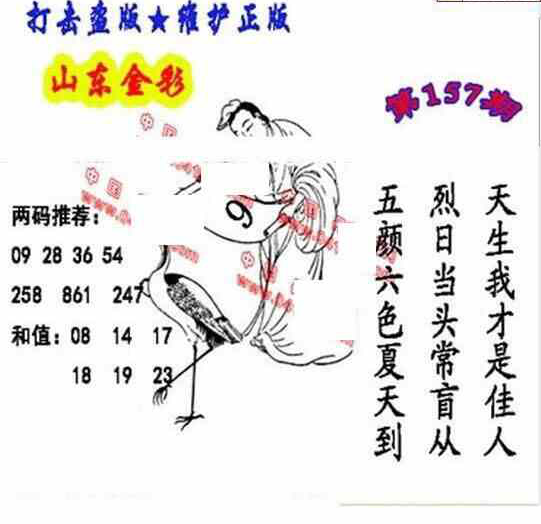 打击盗版★维护正版
山东金彩
第157期
中国
www.
中国
www.
9
两码推荐：
09 28 36 54
258 861 247
和值：08 14 17
18 19 23
天生我才是佳人
烈日当头常盲从
五颜六色夏天到